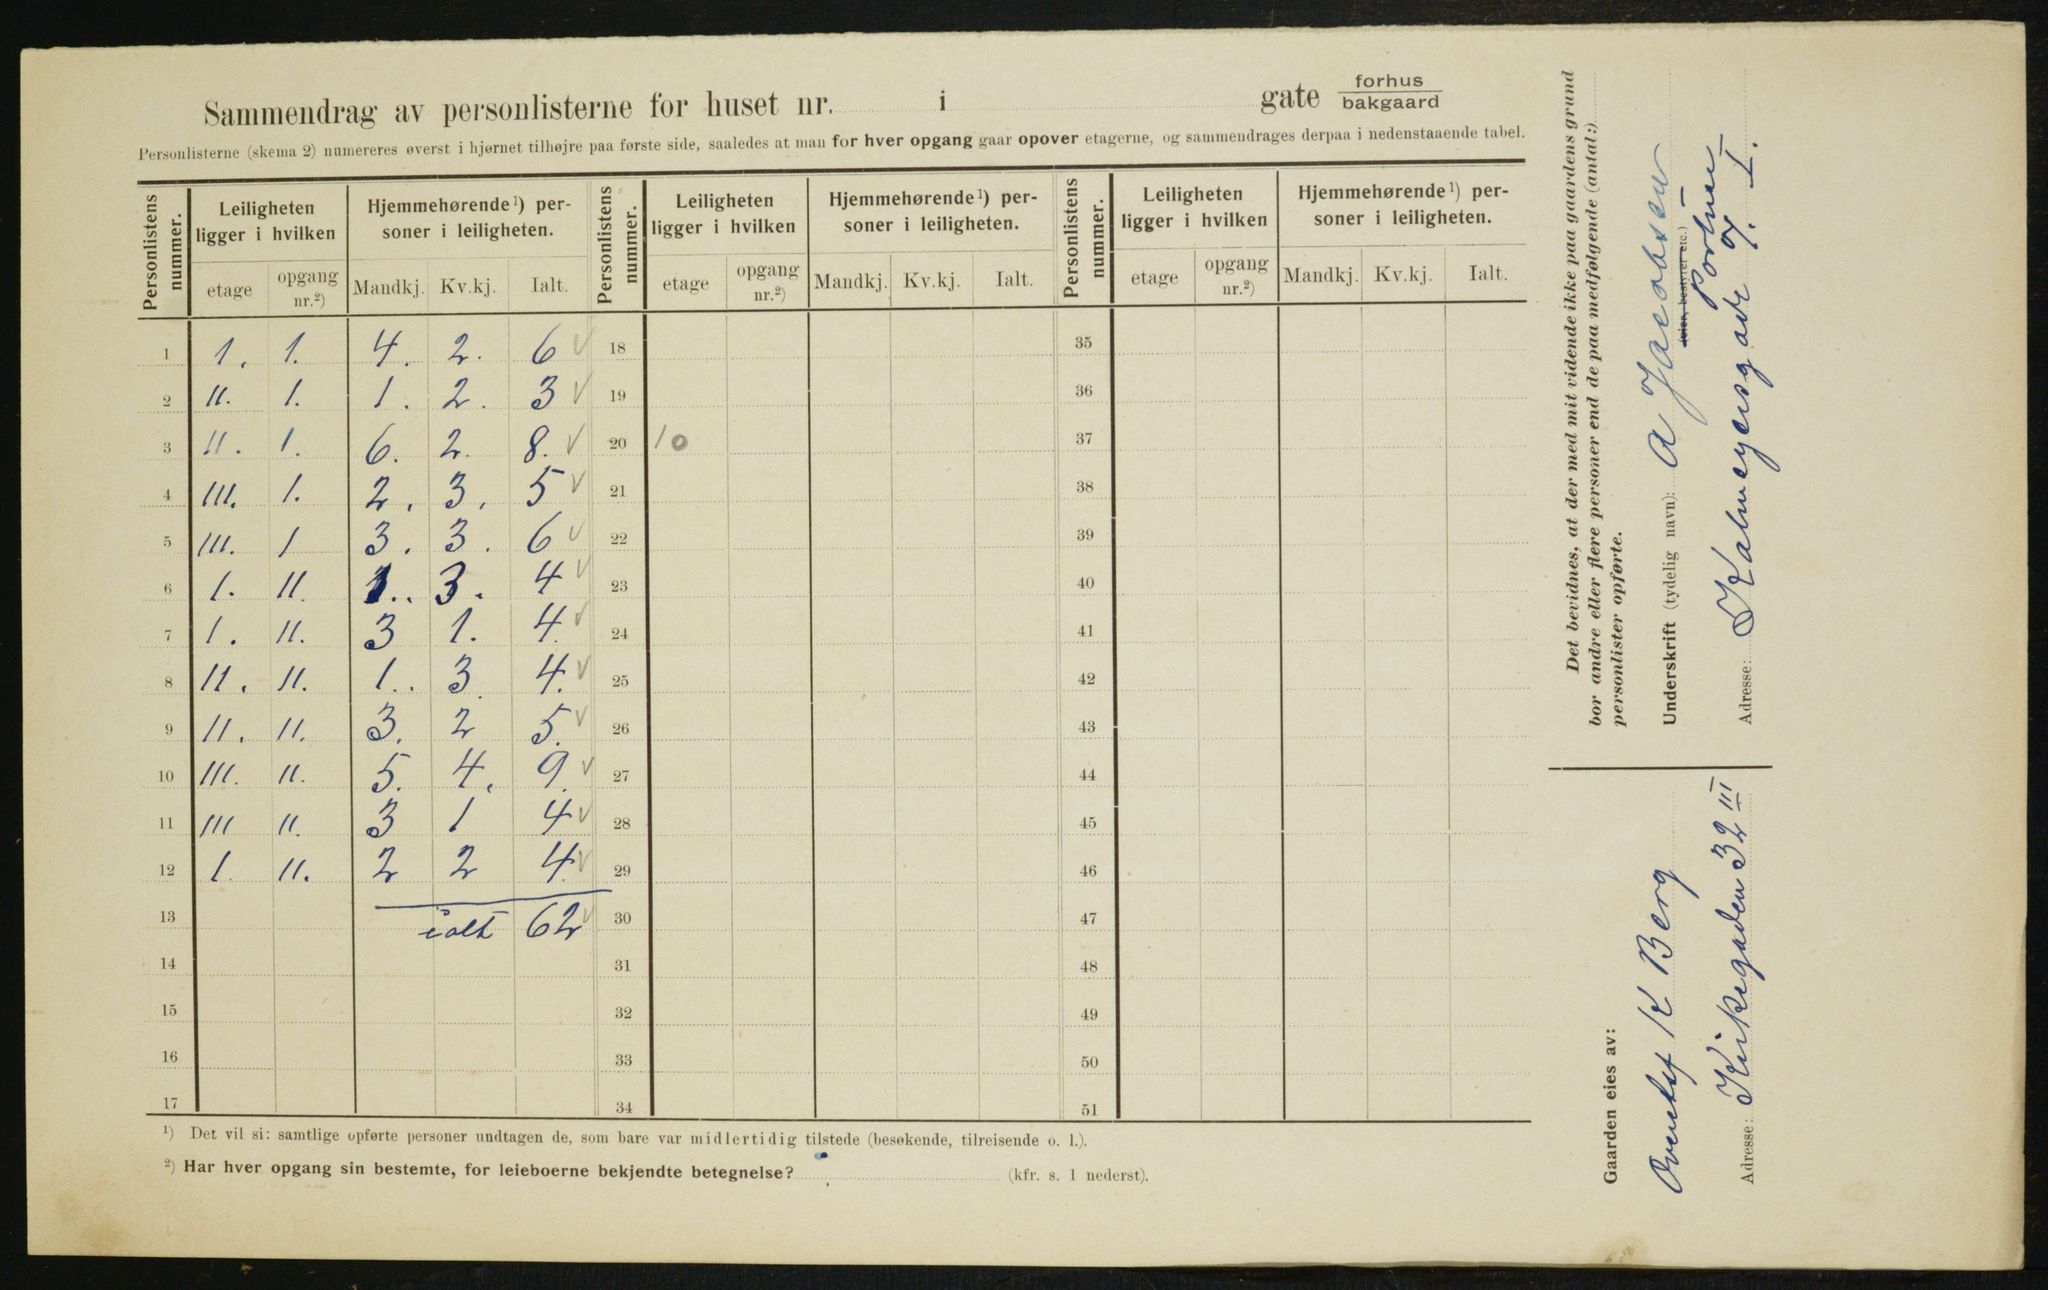 Sammendrag av personlisterne for huset nr. i gate forhus bakgaard
Personlisterne (skema 2) numereres øverst i hjørnet tilhøjre paa første side, saaledes at man for hver opgang gaar opover etagerne, og sammendrages derpaa i nedenstaaende tabel.
Personlistens nummer. Leiligheten ligger i hvilken Hjemmehørende ¹) personer i leiligheten. Personlistens nummer. Leiligheten ligger i hvilken Hjemmehørende ¹) personer i leiligheten. Personlistens nummer. Leiligheten ligger i hvilken Hjemmehørende ¹) personer i leiligheten.
etage opgang nr.²) Mandkj. Kv.kj. Ialt. etage opgang nr.²) Mandkj. Kv.kj. Ialt. etage opgang nr.²) Mandkj. Kv.kj. Ialt.
1 1. 1. 4. 2. 6 √ 18 35
2 II. 1. 1. 2. 3 √ 19 36
3 II. 1. 6. 2. 8. √ 20 10 37
4 III. 1. 2. 3. 5 √ 21 38
5 III. 1 3. 3. 6 √ 22 39
6 1. II. 1.. 3. 4 √ 23 40
7 1. II. 3 1. 4. √ 24 41
8 II. II. 1.. 3. 4. √ 25 42
9 II. II. 3. 2 5. √ 26 43
10 III. II. 5. 4. 9. √ 27 44
11 III II. 3 1 4 √ 28 45
12 1. II. 2 2 4. √ 29 46
13 ialt 62 √ 30 47
14 31 48
15 32 49
16 33 50
17 34 51
¹) Det vil si: samtlige opførte personer undtagen de, som bare var midlertidig tilstede (besøkende, tilreisende o. l.).
²) Har hver opgang sin bestemte, for leieboerne bekjendte betegnelse? (kfr. s. 1 nederst).
Det bevidnes, at der med mit vidende ikke paa gaardens grund
bor andre eller flere personer end de paa medfølgende (antal:)
personlister opførte.
Underskrift (tydelig navn): A Jacobsen
(eier, bestyrer etc.) Portner
Adresse: Kalmeyersgade 7. I.
Gaarden eies av:
K Berg
Adresse: Kirkegaden 32 III